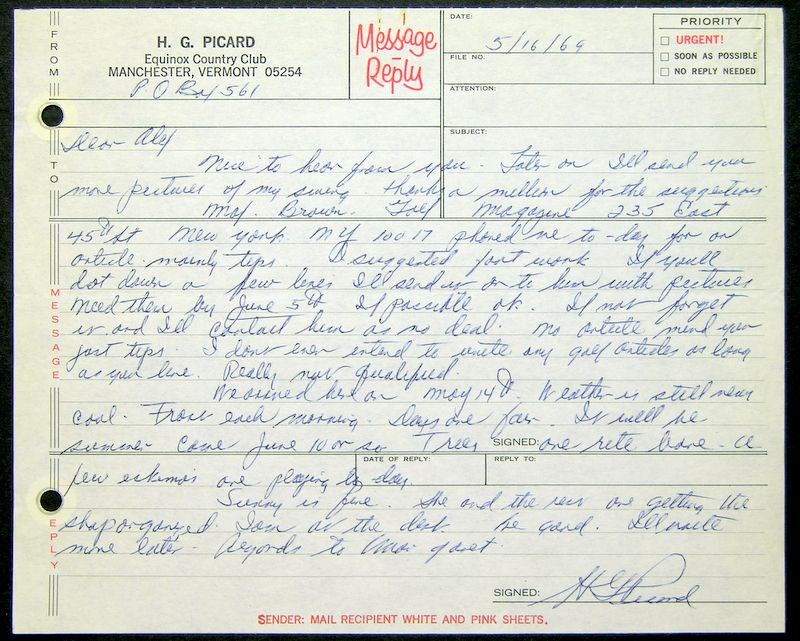 FROM
H. G. PICARD
Equinox Country Club
MANCHESTER, VERMONT 05254
P.O Box 561
Message
Reply
DATE:
5/16/69
FILE NO.
ATTENTION:
SUBJECT:
PRIORITY
URGENT!
SOON AS POSSIBLE
NO REPLY NEEDED
TO
Dear Alex
Nice to hear from you. Later on I'll send you
more pictures of my swing. thanks a million for the suggestions
Mr. Brown. Golf Magazine 235 East
MESSAGE
45th St New York NY 10017 phoned me to-day for an
article. mainly tips. I suggested foot work. If you'll
dot down a few lines I'll send it on to him with pictures
Need them by June 5th If possible ok. If not forget
it and I'll contact him as no deal. No article mind you
just tips. I dont ever intend to write any golf articles as long
as you live. Really not qualified.
We arrived here on May 14th. Weather is still very
cool. Frost each morning. Days are fair. It will be
summer come June 10 or so. Trees are bare. A
SIGNED:
DATE OF REPLY:
REPLY TO:
few eskimos are playing to-day.
EPLY
Sunny is fine. She and the rest are getting the
shop organized. Tom at the desk. Be good. I'll write
more later. Regards to
SIGNED:
HG Picard
SENDER: MAIL RECIPIENT WHITE AND PINK SHEETS.